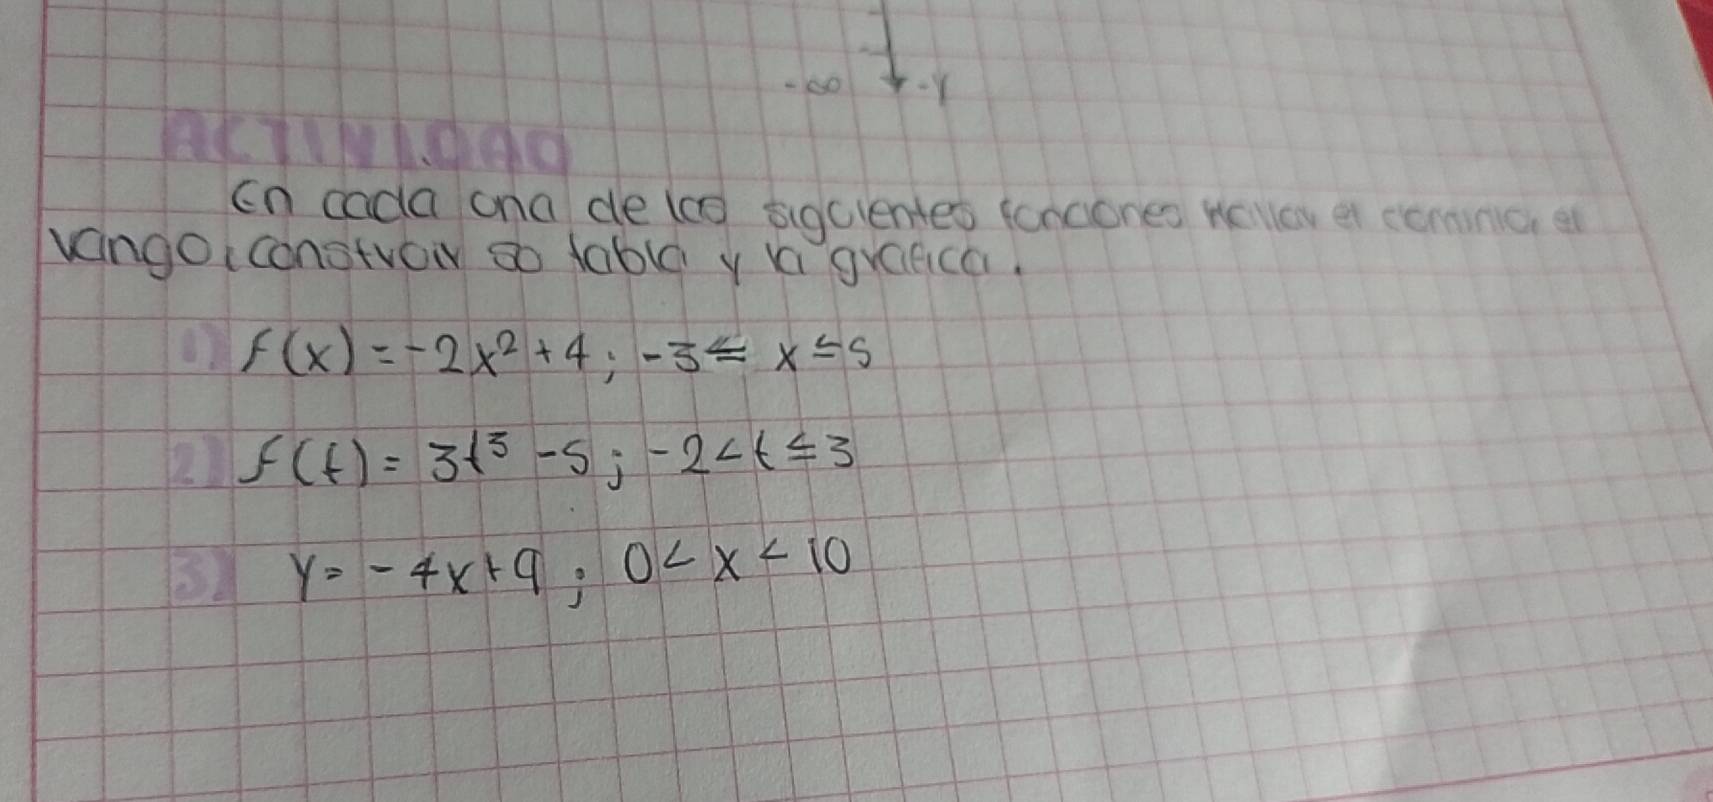 -∞ -Y
ACTIVIDAD
En cada una de las siguientes funciones hallar el dominio, el
rango, construir su tabla y la gráfica.
1) f(x) = -2x² + 4 ; -3 ≤ x ≤ 5
2) f(t) = 3t³ - 5 ; -2 < t ≤ 3
3) Y = -4x + 9 ; 0 < x < 10